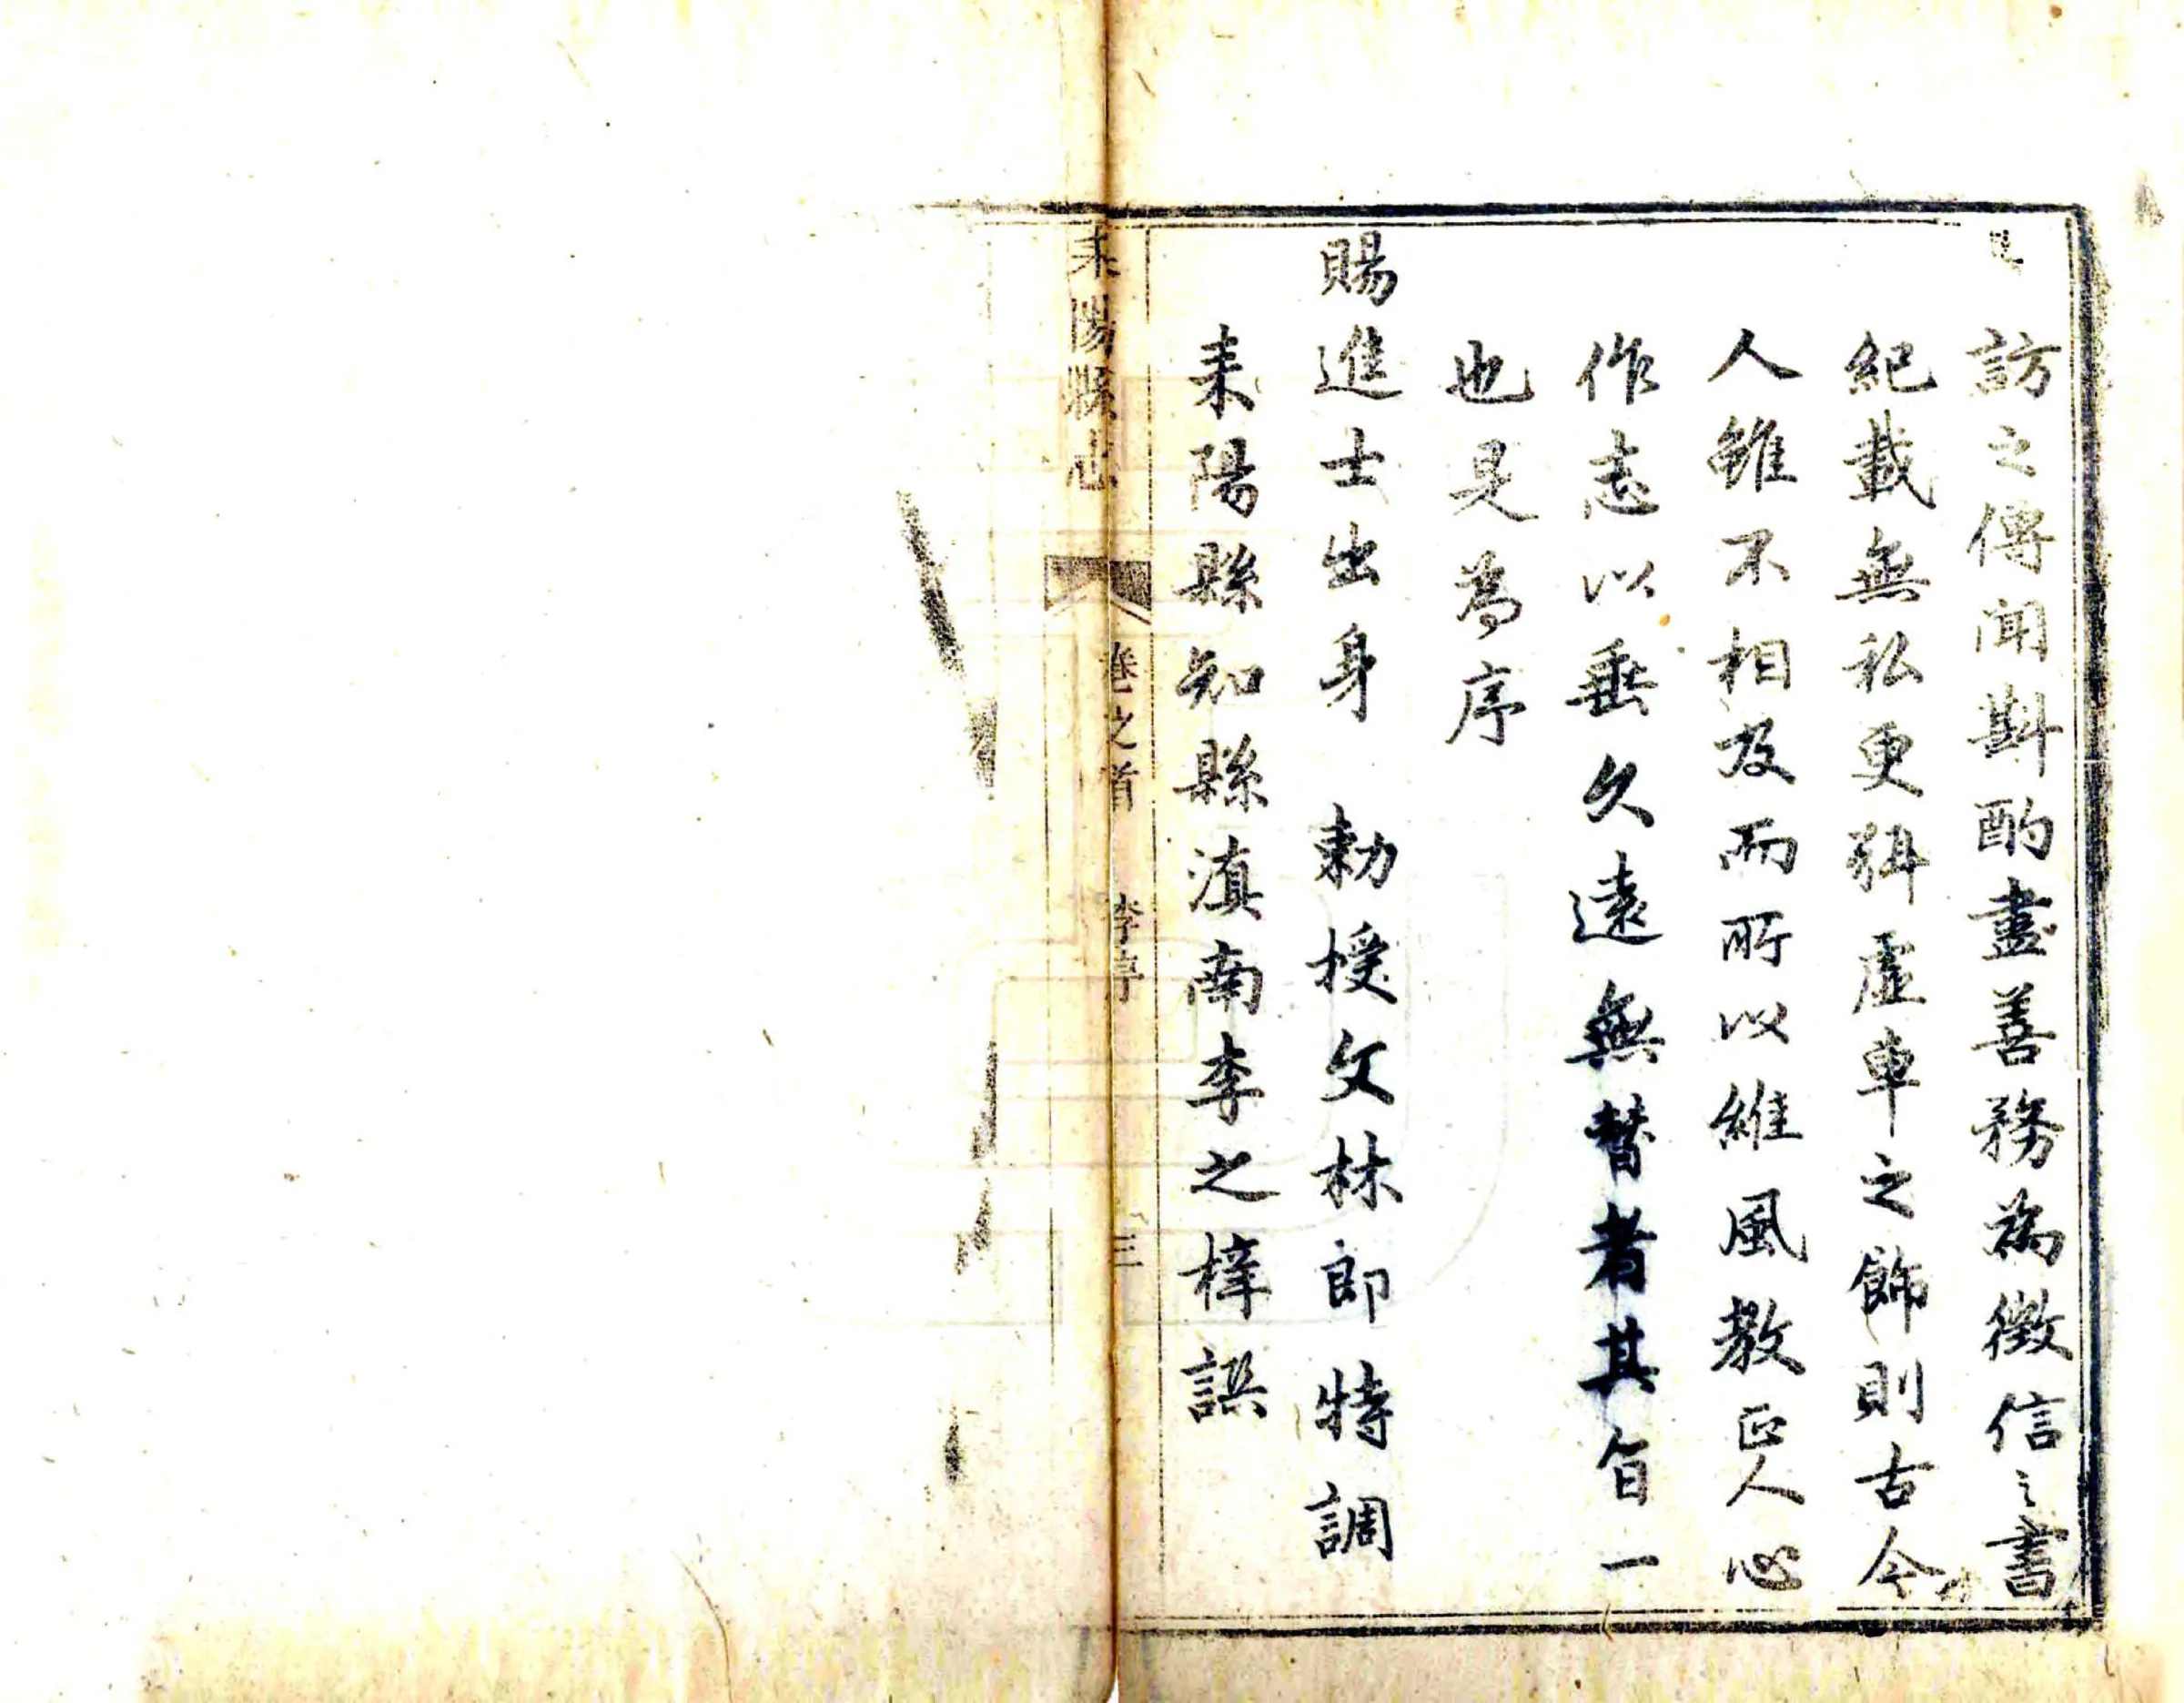 訪之傳聞斟酌盡善務為徵信之書
紀載無私更鮮虛車之飾則古今
人雖不相及而所以維風教正人心
作志以垂久遠無替者其旨一
也是為序
賜進士出身 勅授文林郎特調
耒陽縣知縣滇南李之梓譔
耒陽縣志 卷之首 李序 三